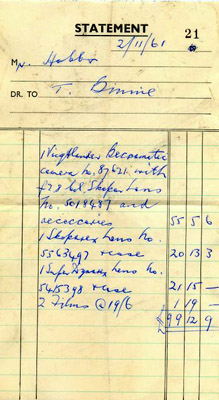 STATEMENT
2/11/61 21
Mr. Hobbs
DR. TO T. Binnie
1 Voigtlander Bessamatic
camera No. 87621 with
f2.8 Skopar Lens
No. 5019487 and
accessories 55 5 6
1 Skoparex Lens No.
5563497 + case 20 13 3
1 Super Dynarex Lens No.
5415398 + case 21 15 —
2 Films @ 19/6 1 19 —
99 12 9